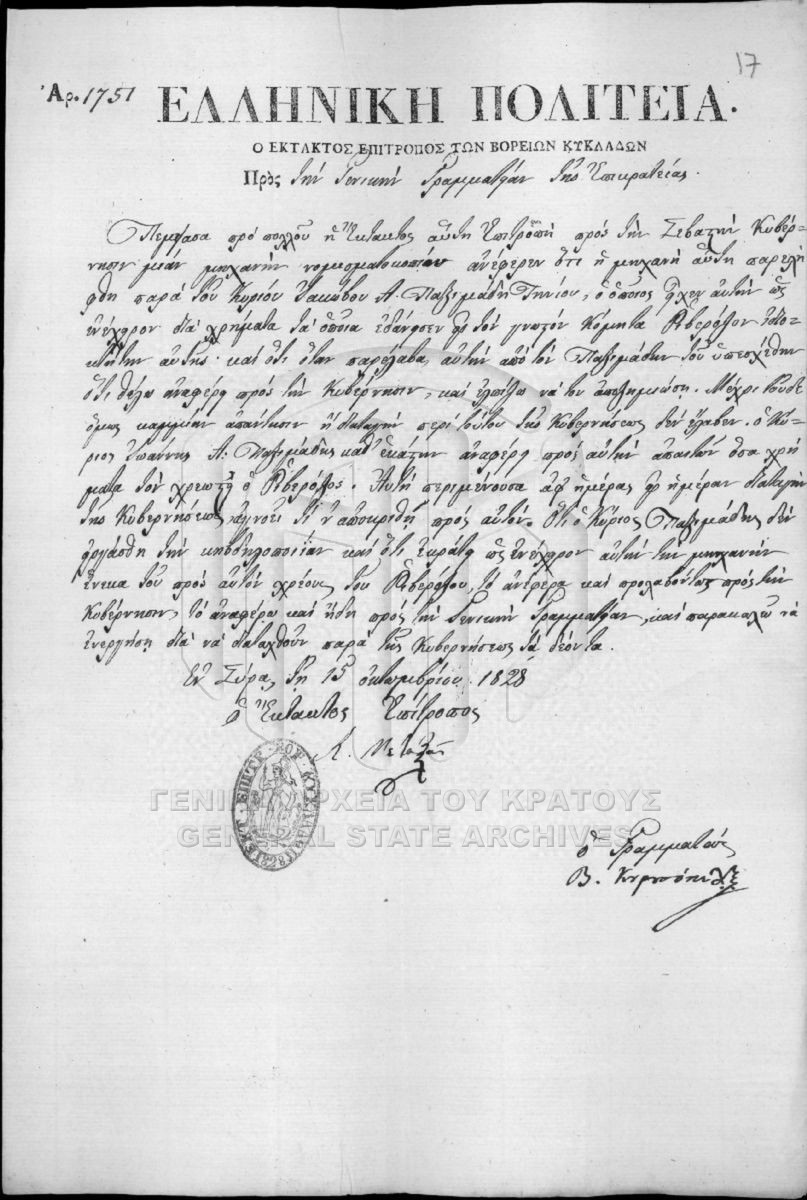 17
Ἀρ. 1751
ΕΛΛΗΝΙΚΗ ΠΟΛΙΤΕΙΑ.
Ο ΕΚΤΑΚΤΟΣ ΕΠΙΤΡΟΠΟΣ ΤΩΝ ΒΟΡΕΙΩΝ ΚΥΚΛΑΔΩΝ
Πρὸς τὴν Γενικὴν Γραμματείαν τῆς Ἐπικρατείας.
Πέμψασα πρὸ πολλοῦ ἡ Ἔκτακτος αὕτη Ἐπιτροπὴ πρὸς τὴν Σεβαστὴν Κυβέρ-
νησιν μίαν μηχανὴν νομισματοκοπίου ἀνέφερεν ὅτι ἡ μηχανὴ αὕτη παρελή
φθη παρὰ τοῦ Κυρίου Ἰακώβου Α. Παξιμάδη Τηνίου, ὁ ὁποῖος εἶχεν αὐτὴν ὡς
ἐνέχυρον διὰ χρήματα τὰ ὁποῖα ἐδάνεισεν εἰς τὸν γνωστὸν Κόμητα Ῥιβερόλον ἰδιο-
κτήτην αὐτῆς· καὶ ὅτι ὅταν παρέλαβα αὐτὴν ἀπὸ τὸν Παξιμάδην τοῦ ὑπεσχέθην
ὅτι θέλω ἀναφέρῃ πρὸς τὴν Κυβέρνησιν, καὶ ἐλπίζω νὰ τὸν ἀποζημιώσῃ. Μέχρι τοῦδε
ὅμως καμμίαν ἀπάντησιν ἢ διαταγὴν περὶ τούτου τῆς Κυβερνήσεως δὲν ἔλαβεν. ὁ Κύ-
ριος Ἰωάννης Α. Παξιμάδης καθ' ἑκάστην ἀναφέρει πρὸς αὐτὴν ἀπαιτῶν ὅσα χρή
ματα τὸν χρεωστεῖ ὁ Ῥιβερόλος. Αὐτὴ περιμένουσα ἀφ' ἡμέρας εἰς ἡμέραν διαταγὴν
τῆς Κυβερνήσεως ἀγνοεῖ τί ν' ἀποκριθῇ πρὸς αὐτόν. ὅτι ὁ Κύριος Παξιμάδης δὲν
ἐργάσθη τὴν κιβδηλοποιΐαν καὶ ὅτι ἐκράτει ὡς ἐνέχυρον αὐτὴν τὴν μηχανὴν
ἕνεκα τοῦ πρὸς αὐτὸν χρέους τοῦ Ῥιβερόλου, τὸ ἀνέφερα καὶ προλαβόντως πρὸς τὴν
Κυβέρνησιν, τὸ ἀναφέρω καὶ ἤδη πρὸς τὴν Γενικὴν Γραμματείαν, καὶ παρακαλῶ νὰ
ἐνεργήσῃ διὰ νὰ διαταχθοῦν παρὰ τῆς Κυβερνήσεως τὰ δέοντα.
Ἐν Σύρᾳ τῇ 15 ὀκτωμβρίου 1828
ὁ Ἔκτακτος Ἐπίτροπος
Κ. Μεταξᾶς
ΕΚΤ. ΕΠΙΤΡ. ΒΟΡ. ΚΥΚΛΑΔΩΝ 1828
ΓΕΝΙΚΑ ΑΡΧΕΙΑ ΤΟΥ ΚΡΑΤΟΥΣ
GENERAL STATE ARCHIVES
ὁ Γραμματεύς
Β.